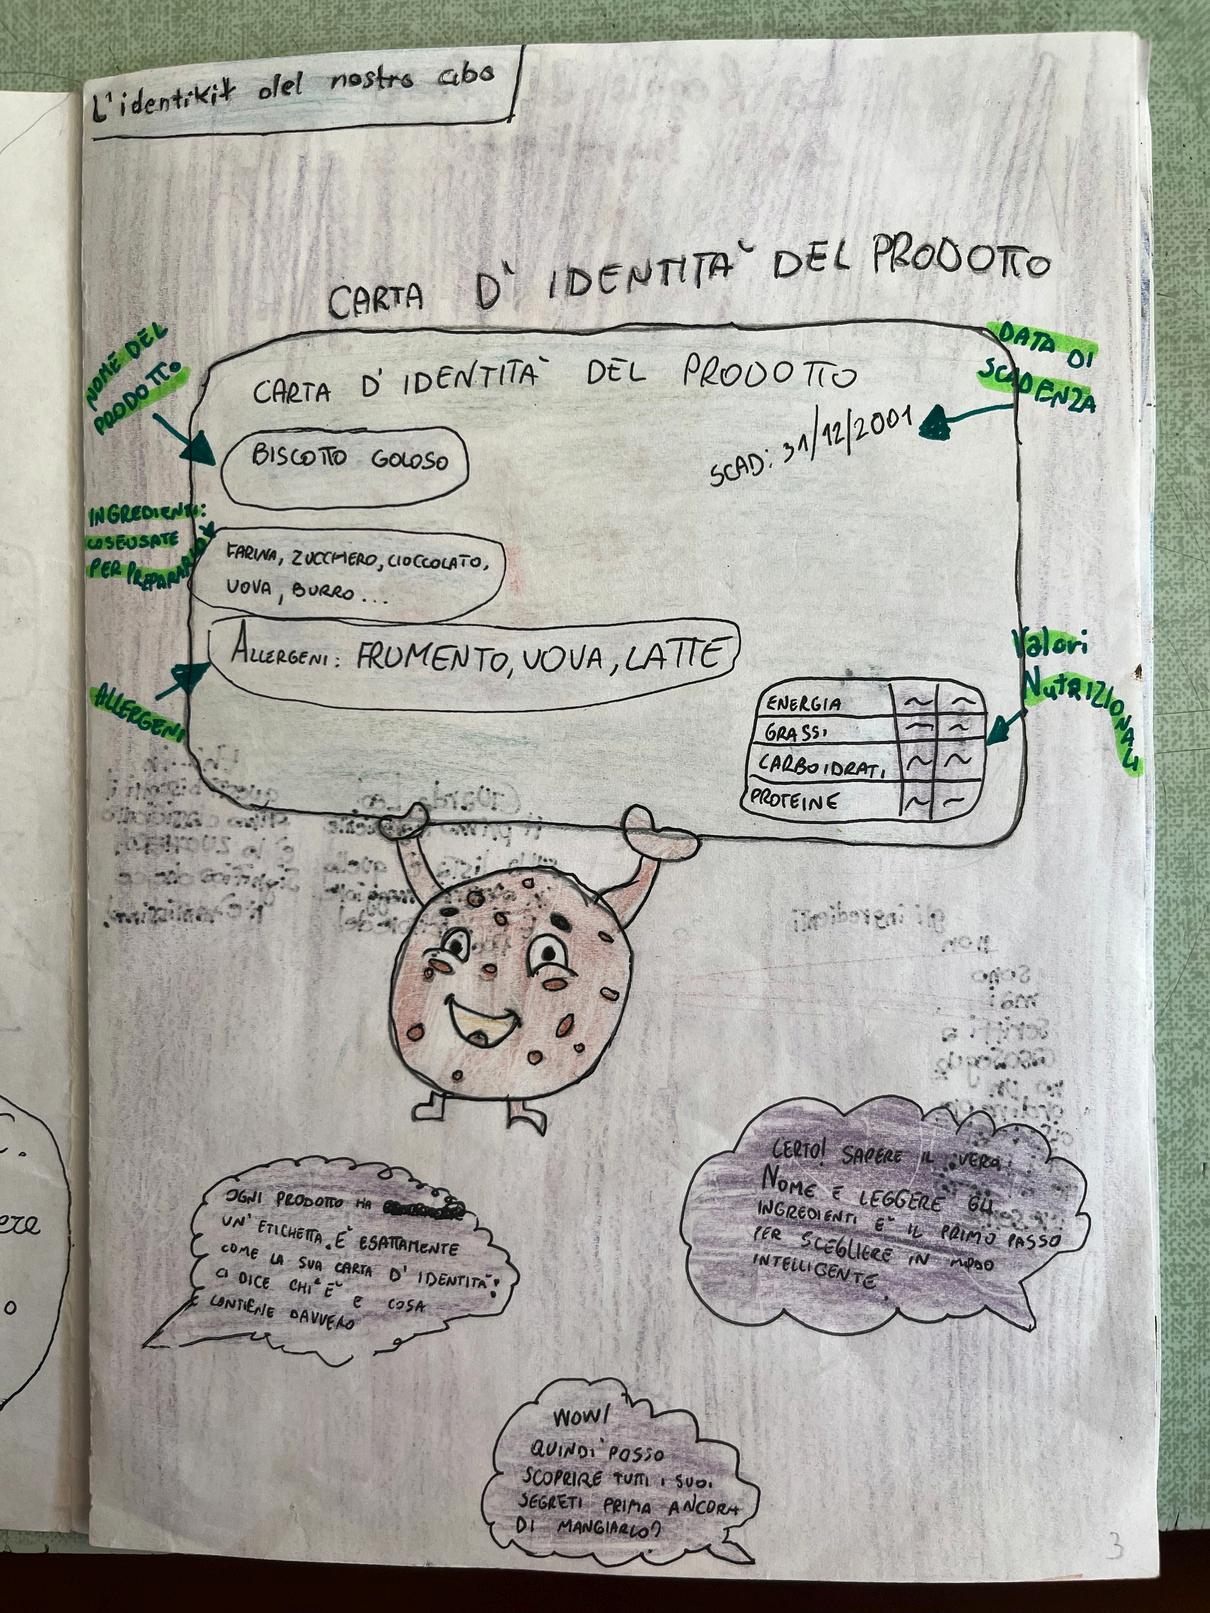 L'identikit del nostro cibo
CARTA D' IDENTITA' DEL PRODOTTO
NOME DEL
PRODOTTO
DATA DI
SCADENZA
CARTA D' IDENTITA' DEL PRODOTTO
SCAD: 31/12/2001
BISCOTTO GOLOSO
INGREDIENTI:
COSE USATE
PER PREPARARLO
FARINA, ZUCCHERO, CIOCCOLATO,
UOVA, BURRO...
ALLERGENI: FRUMENTO, UOVA, LATTE
ALLERGENI
Valori
NUTRIZIONALI
ENERGIA ~ ~
GRASSI ~ ~
CARBOIDRATI ~ ~
PROTEINE ~ ~
OGNI PRODOTTO HA
UN' ETICHETTA. E' ESATTAMENTE
COME LA SUA CARTA D' IDENTITA':
CI DICE CHI E' E COSA
CONTIENE DAVVERO
CERTO! SAPERE IL VERO
NOME E LEGGERE GLI
INGREDIENTI E' IL PRIMO PASSO
PER SCEGLIERE IN MODO
INTELLIGENTE.
WOW!
QUINDI POSSO
SCOPRIRE TUTTI I SUOI
SEGRETI PRIMA ANCORA
DI MANGIARLO?
3